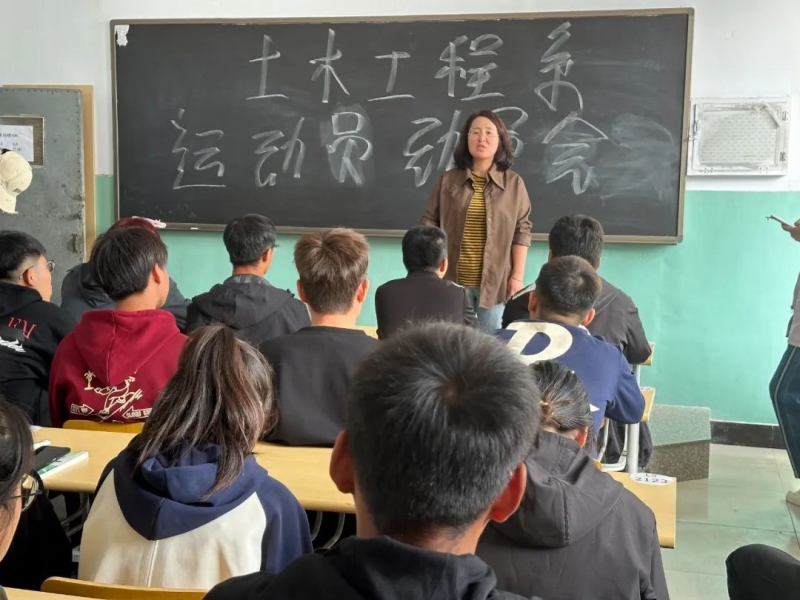 土木工程系
运动员动员会
2123